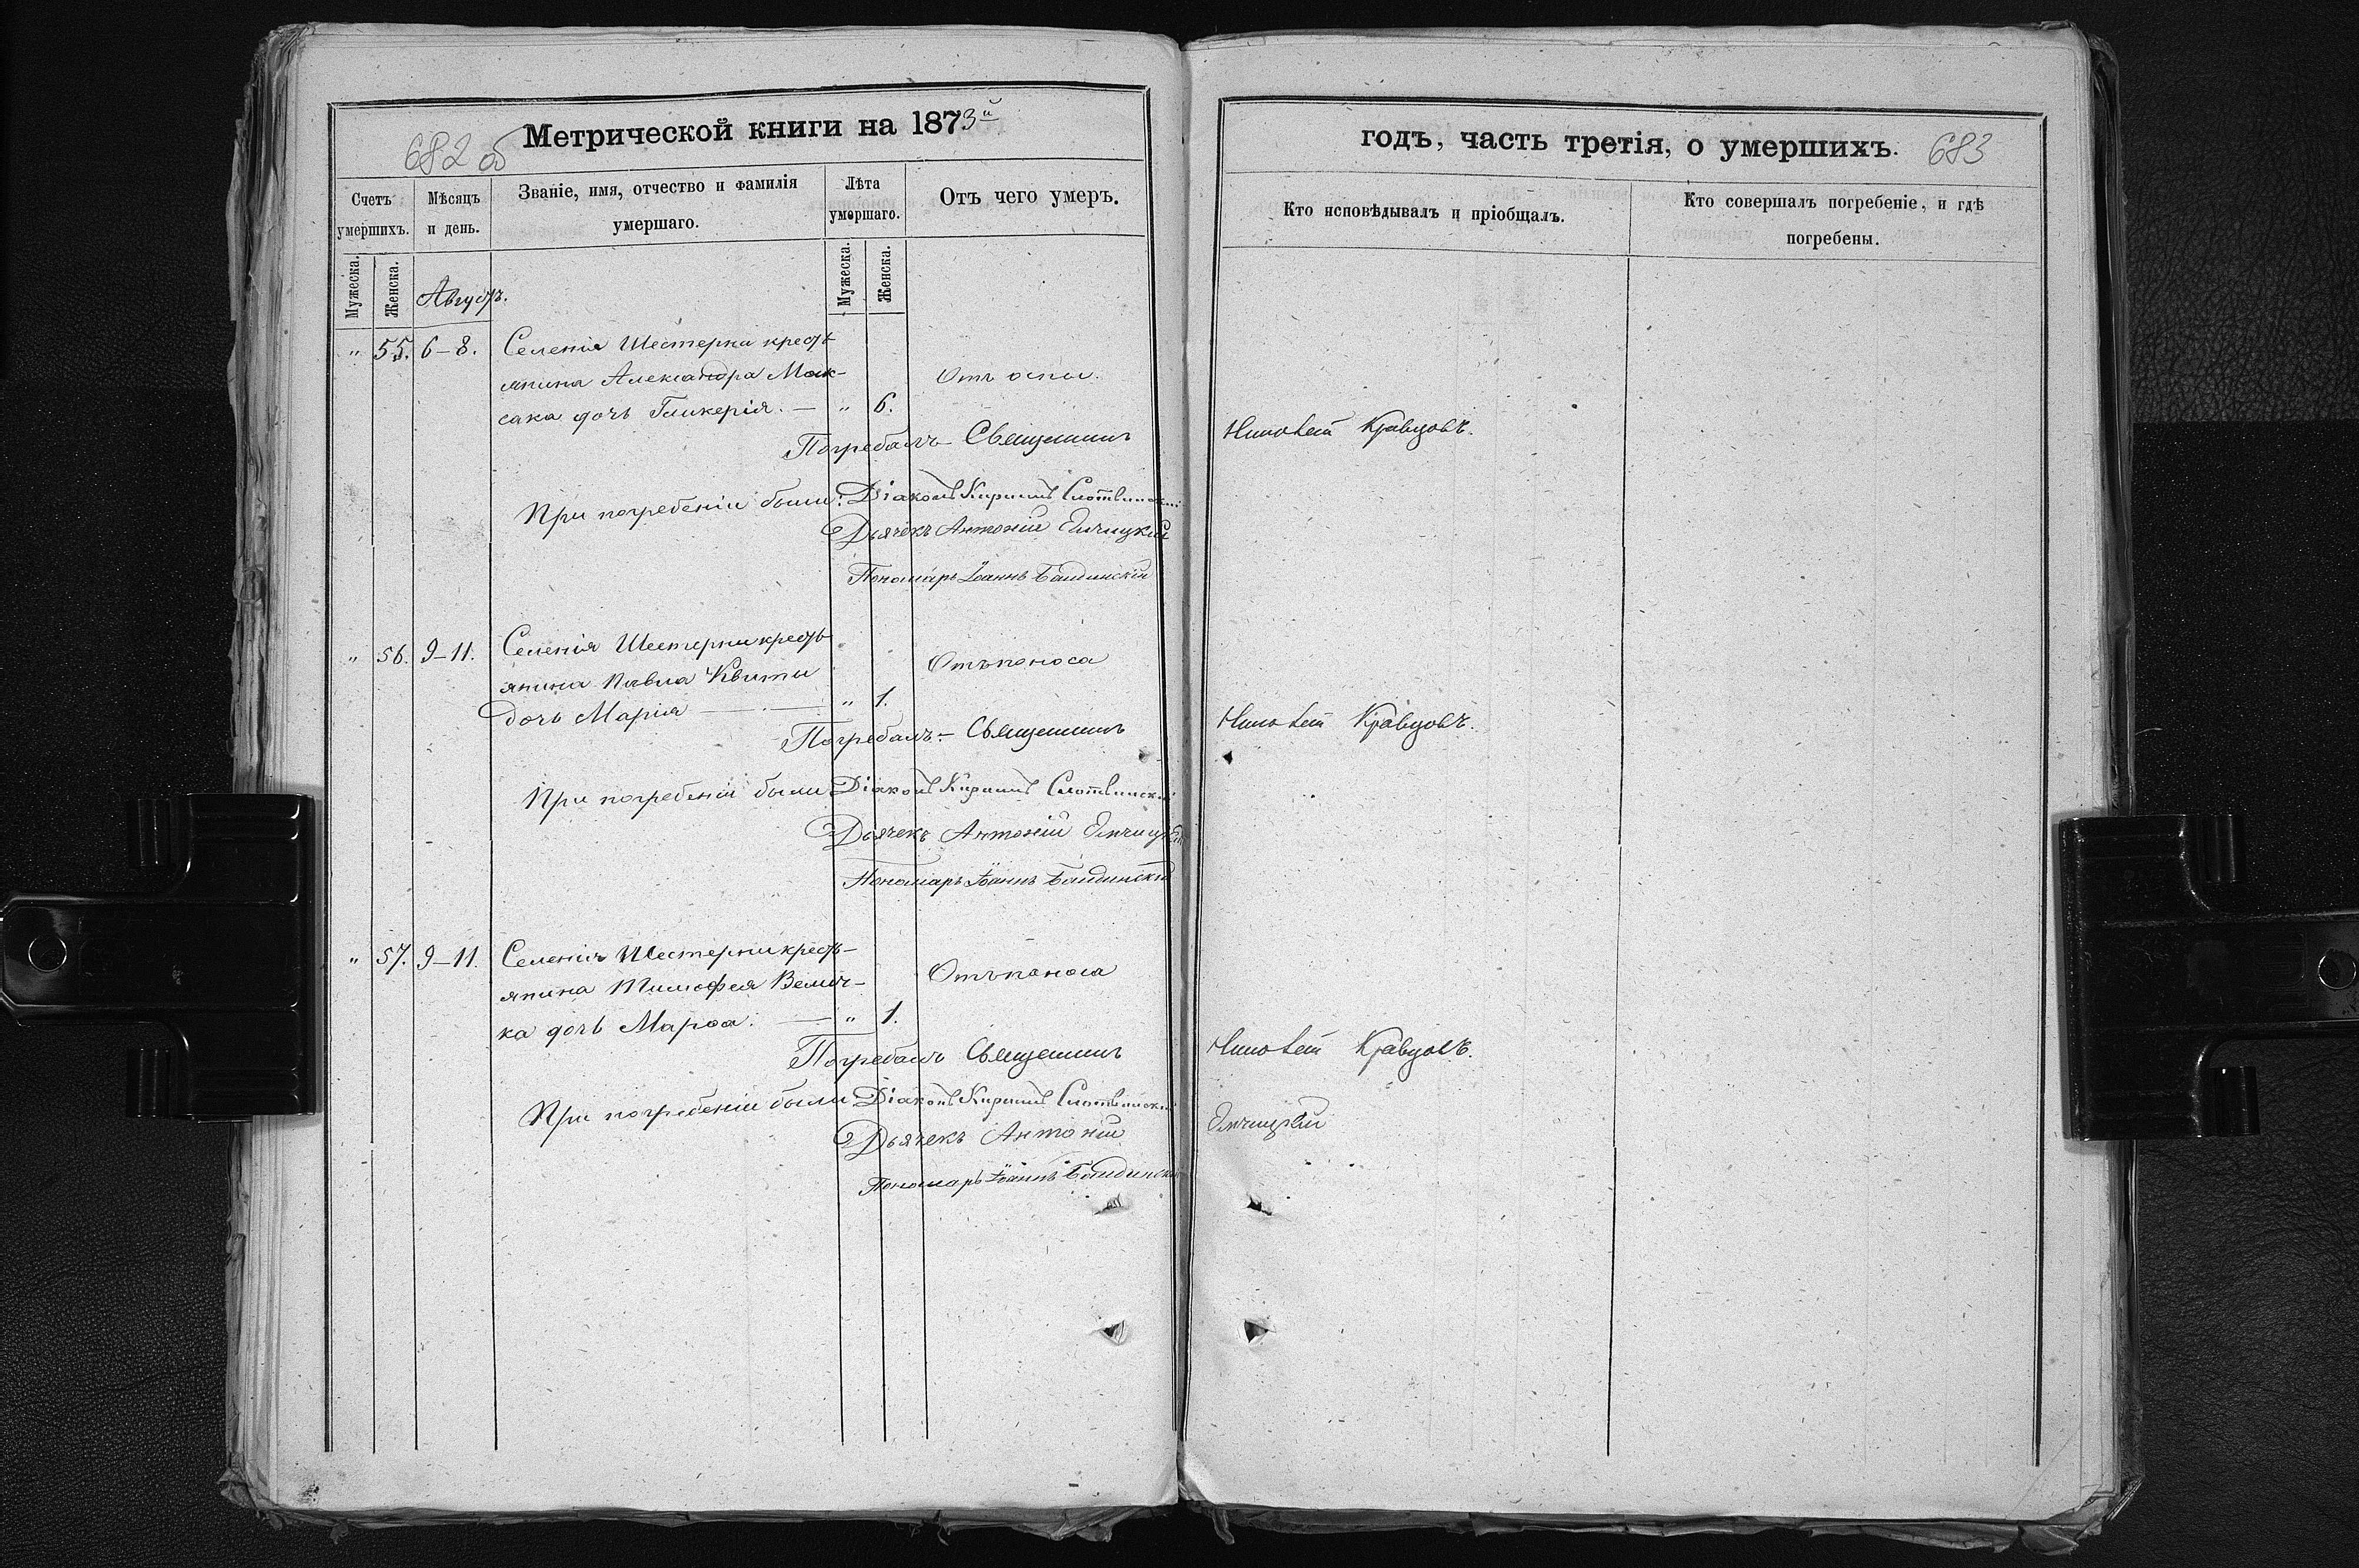 682 об
Метрической книги на 1873й
годъ, часть третія, о умершихъ.
683
Счетъ умершихъ.
Мѣсяцъ и день.
Званіе, имя, отчество и фамилія умершаго.
Лѣта умершаго.
Отъ чего умеръ.
Кто исповѣдывалъ и пріобщалъ.
Кто совершалъ погребеніе, и гдѣ погребены.
Мужеска.
Женска.
Августъ.
Мужеска.
Женска.
" 55. 6-8. Селенія Шестерни кресть
янина Александра Мак-
Отъ оспы.
сака дочь Гликерія. — " 6.
Погребалъ Священникъ Кравцовъ.
При погребеніи были: Діаконъ Кириллъ
Дьячекъ Антоній
Пономарь Іоаннъ
" 56. 9-11. Селенія Шестерни кресть
янина Павла Квиты
Отъ поноса
дочь Марія — " 1.
Погребалъ - Священникъ Кравцовъ.
При погребеніи были Діаконъ Кириллъ
Дьячекъ Антоній
Пономарь Іоаннъ
" 57. 9-11. Селенія Шестерни кресть-
янина Тимофея Велич-
Отъ поноса
ка дочь Марѳа. — " 1.
Погребалъ Священникъ Кравцовъ.
При погребеніи были Діаконъ Кириллъ
Дьячекъ Антоній
Пономарь Іоаннъ